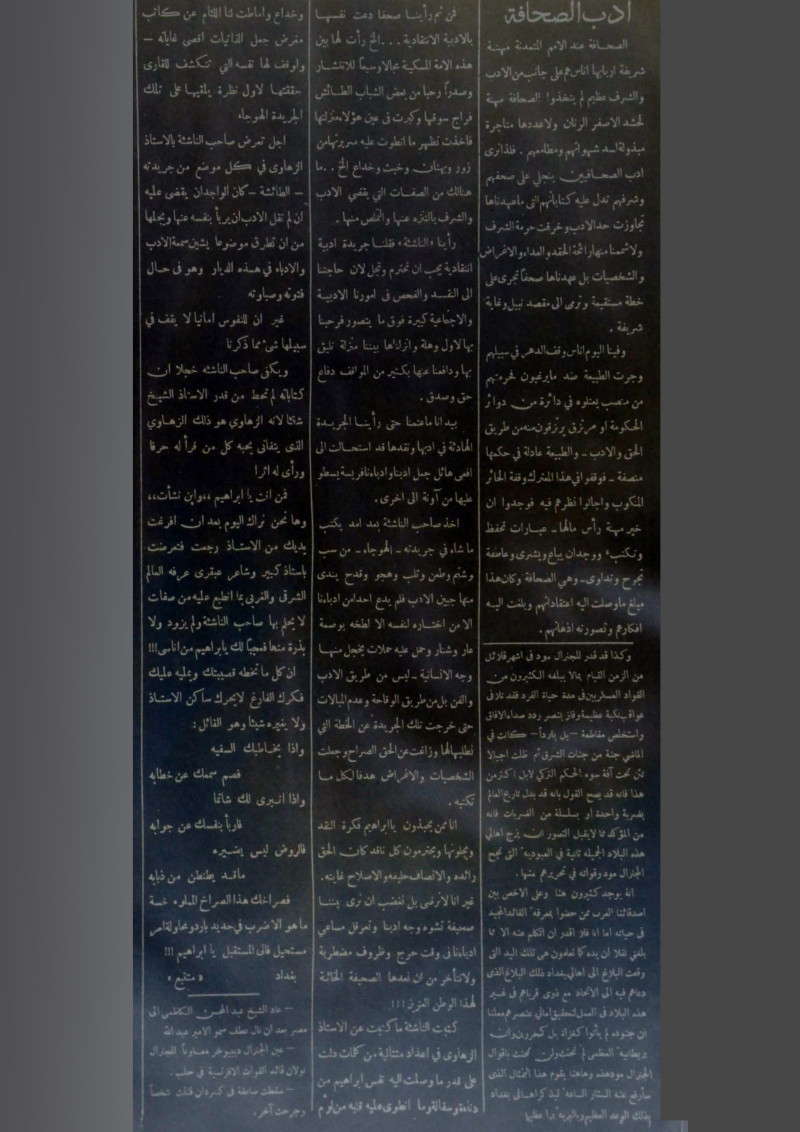 ادب الصحافة
الصحافة عند الامم المتمدنة مهنة
شريفة اربابها اناس هم على جانب من الادب
والشرف عظيم لم يتخذوا الصحافة مهنة
لحشد الاصفر الرنان ولا عددها متاجرة
مبذولة لسد شهواتهم ومطامعهم . فلذا ترى
ادب الصحافيين ينجلي على صحفهم
وشرفهم تدل عليه كتاباتهم التي ما عهدناها
تجاوزت حد الادب وخرقت حرمة الشرف
ولا شممنا منها رائحة الحقد والعداء والاغراض
والشخصيات بل عهدناها صحفا تجرى على
خطة مستقيمة وترمى الى مقصد نبيل وغاية
شريفة .
وفينا اليوم اناس وقف الدهر في سبيلهم
وجرت الطبيعة ضد ما يرغبون فحرمتهم
من منصب يعتلوه في دائرة من دوائر
الحكومة او مرتزق يرتزقون منه من طريق
الحق والادب ــ والطبيعة عادلة في حكمها
منصفة ــ فوقفوا في هذا المعترك وقفة الحائر
المنكوب واجالوا نظرهم فيه فوجدوا ان
خير مهنة رأس مالها ــ عبارات تحفظ
وتكتب ووجدان يباع ويشرى وعاطفة
تجرح وتداوى ــ وهي الصحافة وكان هذا
مبلغ ما وصلت اليه اعتقاداتهم وبلغت اليه
افكارهم وتصورته اذهانهم .
وكذا قد قدر للجنرال مود في اشهر قلائل
من الزمن القيام بما لا يبلغه الكثيرون من
القواد العسكريين في مدة حياة الفرد فقد تلافى
عواقب نكبة عظيمة وفاز بنصر ردد صداه الافاق
واستخلص مقاطعة ــ بل بلاداً ــ كانت في
الماضي جنة من جنات الشرق ثم ظلت اجيالا
تئن تحت آفة سوء الحكم التركي لابل اكثر من
هذا فانه قد يصح القول بانه قد بدل تاريخ العالم
بضربة واحدة او بسلسلة من الضربات فانه
من المؤكد مما لا يقبل التصور ان يزج اهالي
هذه البلاد الجميله ثانية في العبودية التي نجح
الجنرال مود وقواته في تحريرهم منها .
انه يوجد كثيرون هنا وعلى الاخص بين
اصدقائنا العرب ممن حضوا بمعرفة القائد المجيد
في حياته اما انا فلا اقدر ان اتكلم عنه الا مما
بلغني نقلا ان يده كما تعلمون هي تلك اليد التي
وقعت البلاغ الى اهالي بغداد ذلك البلاغ الذي
دعاهم فيه الى الاتحاد مع ذوى قرباهم في غير
هذه البلاد في العمل لتحقيق اماني عنصرهم معلنا
ان جنوده لم يأتوا كغزاة بل كمحررين وان
بريطانية العظمى لم تحنث ولن تحنث باقوال
الجنرال مود هذه وهاهنا يقوم هذا التمثال الذى
سأرفع عنه الستار الساعة ليذكر اهالى بغداد
بذلك الوعد العظيم
فمن ثم رأينا صحفا دعت نفسها
بالادبية الانتقادية ... الخ رأت لها بين
هذه الامة المسكينة مجالا وسيعاً للانتشار
وصدراً رحبا من بعض الشباب الطائش
فراج سوقها وكبرت في عين هؤلاء منزلتها
فاخذت تظهر ما انطوت عليه سريرتها من
زور وبهتان وخبث وخداع الخ .. ما
هنالك من الصفات التي يقضي الادب
والشرف بالتنزه عنها والتملص منها .
رأينا «الناشئة» فقلنا جريدة ادبية
انتقادية يجب ان نحترم وتجل لان حاجتنا
الى النقد والفحص في امورنا الادبية
والاجتماعية كبيرة فوق ما يتصور فرحبنا
بها لاول وهلة وانزلناها بيننا منزلة تليق
بها ودافعنا عنها بكثير من المواقف دفاع
حق وصدق .
بيد انا ما عتمنا حتى رأينا الجريدة
الهادئة في ادبها ونقدها قد استحالت الى
افعى هائل جعل ادبنا وادباءنا فريسة يسطو
عليها من آونة الى اخرى .
اخذ صاحب الناشئة بعد امد يكتب
ما شاء في جريدته ــ الهوجاء ــ من سب
وشتم وطعن وثلب وهجو وقدح يندى
منها جبين الادب فلم يدع احدا من ادباءنا
الا من اختاره لنفسه الا لطخه بوصمة
عار وشنار وحمل عليه حملات يخجل منها
وجه الانسانية ــ ليس من طريق الادب
والفن بل من طريق الوقاحة وعدم المبالات
حتى خرجت تلك الجريدة عن الخطة التي
نطلبها لها وزاغت عن الحق الصراح وجعلت
الشخصيات والاغراض هدفا لكل ما
تكتبه .
انا ممن يحبذون يا ابراهيم فكرة النقد
ويجلونها ويحترمون كل ناقد كان الحق
رائده والانصاف حليفه والاصلاح غايته .
غير انا لا نرضى بل نغضب ان نرى بيننا
صحيفة تشوه وجه ادبنا وتعرقل مساعي
ادباءنا في وقت حرج وظروف مضطربة
ولا نتأخر من ان نعدها الصحيفة الخائنة
لهذا الوطن العزيز !!!
كتبت الناشئة ما كتبت عن الاستاذ
الزهاوى في اعداد متتالية من كلمات دلت
على قدر ما وصلت اليه نفس ابراهيم من
دناءة وسفالة وما انطوى عليه قلبه من لؤم
وخداع واماطت لنا اللثام عن كاتب
مغرض جعل الذاتيات اقصى غاياته ــ
واوقف لها نفسه التي تنكشف للقارى
حقيقتها لاول نظرة يلقيها على تلك
الجريدة الهوجاء
اجل تعرض صاحب الناشئة بالاستاذ
الزهاوى في كل موضع من جريدته
ــ الطائشة ــ كان الواجدان يقضى عليه
ان لم نقل الادب ان يربأ بنفسه عنها ويجلها
من ان تطرق موضوعا يشين سمعة الادب
والادباء في هذه الديار وهو في حال
فتوته وصباوته
غير ان للنفوس امانيا لا يقف في
سبيلها شيء مما ذكرنا
ويكفي صاحب الناشئه خجلا ان
كتاباته لم تحط من قدر الاستاذ الشيخ
شيئا لانه الزهاوى هو ذلك الزهاوى
الذى يتفانى بحبه كل من قرأ له حرفا
ورأى له اثرا
فمن انت يا ابراهيم ،،واين نشأت،،
وها نحن نراك اليوم بعد ان افرغت
يديك من الاستاذ رجعت فتعرضت
باستاذ كبير وشاعر عبقرى عرفه العالم
الشرقى والغربي بما انطبع عليه من صفات
لا يحلم بها صاحب الناشئة ولم يزود ولا
بذرة منها فعجبا لك يا ابراهيم من اناسي !!!
ان كل ما تخطه قصبتك ويمليه عليك
فكرك الفارغ لا يحرك ساكن الاستاذ
ولا يغيره شيئا وهو القائل :
واذا يخاطبك السفيه
فصم سمعك عن خطابه
واذا انبرى لك شاتما
فاربأ بنفسك عن جوابه
فالروض ليس يضيره
ما قد يطنطن من ذبابه
فصراخك هذا الصراخ المملوء خسة
ما هو الا ضرب في حديد بارد ومحاولة امر
مستحيل فالى المستقبل يا ابراهيم !!!
بغداد « متتبع »
ــ عاد الشيخ عبد المحسن الكاظمي الى
مصر بعد ان نال عطف سمو الامير عبد الله
ــ عين الجنرال ديبيوخر معاوناً للجنرال
نولان قائد القوات الافرنسية في حلب .
ــ سقطت صاعقة في كسردان قتلت شخصاً
وجرحت آخر .